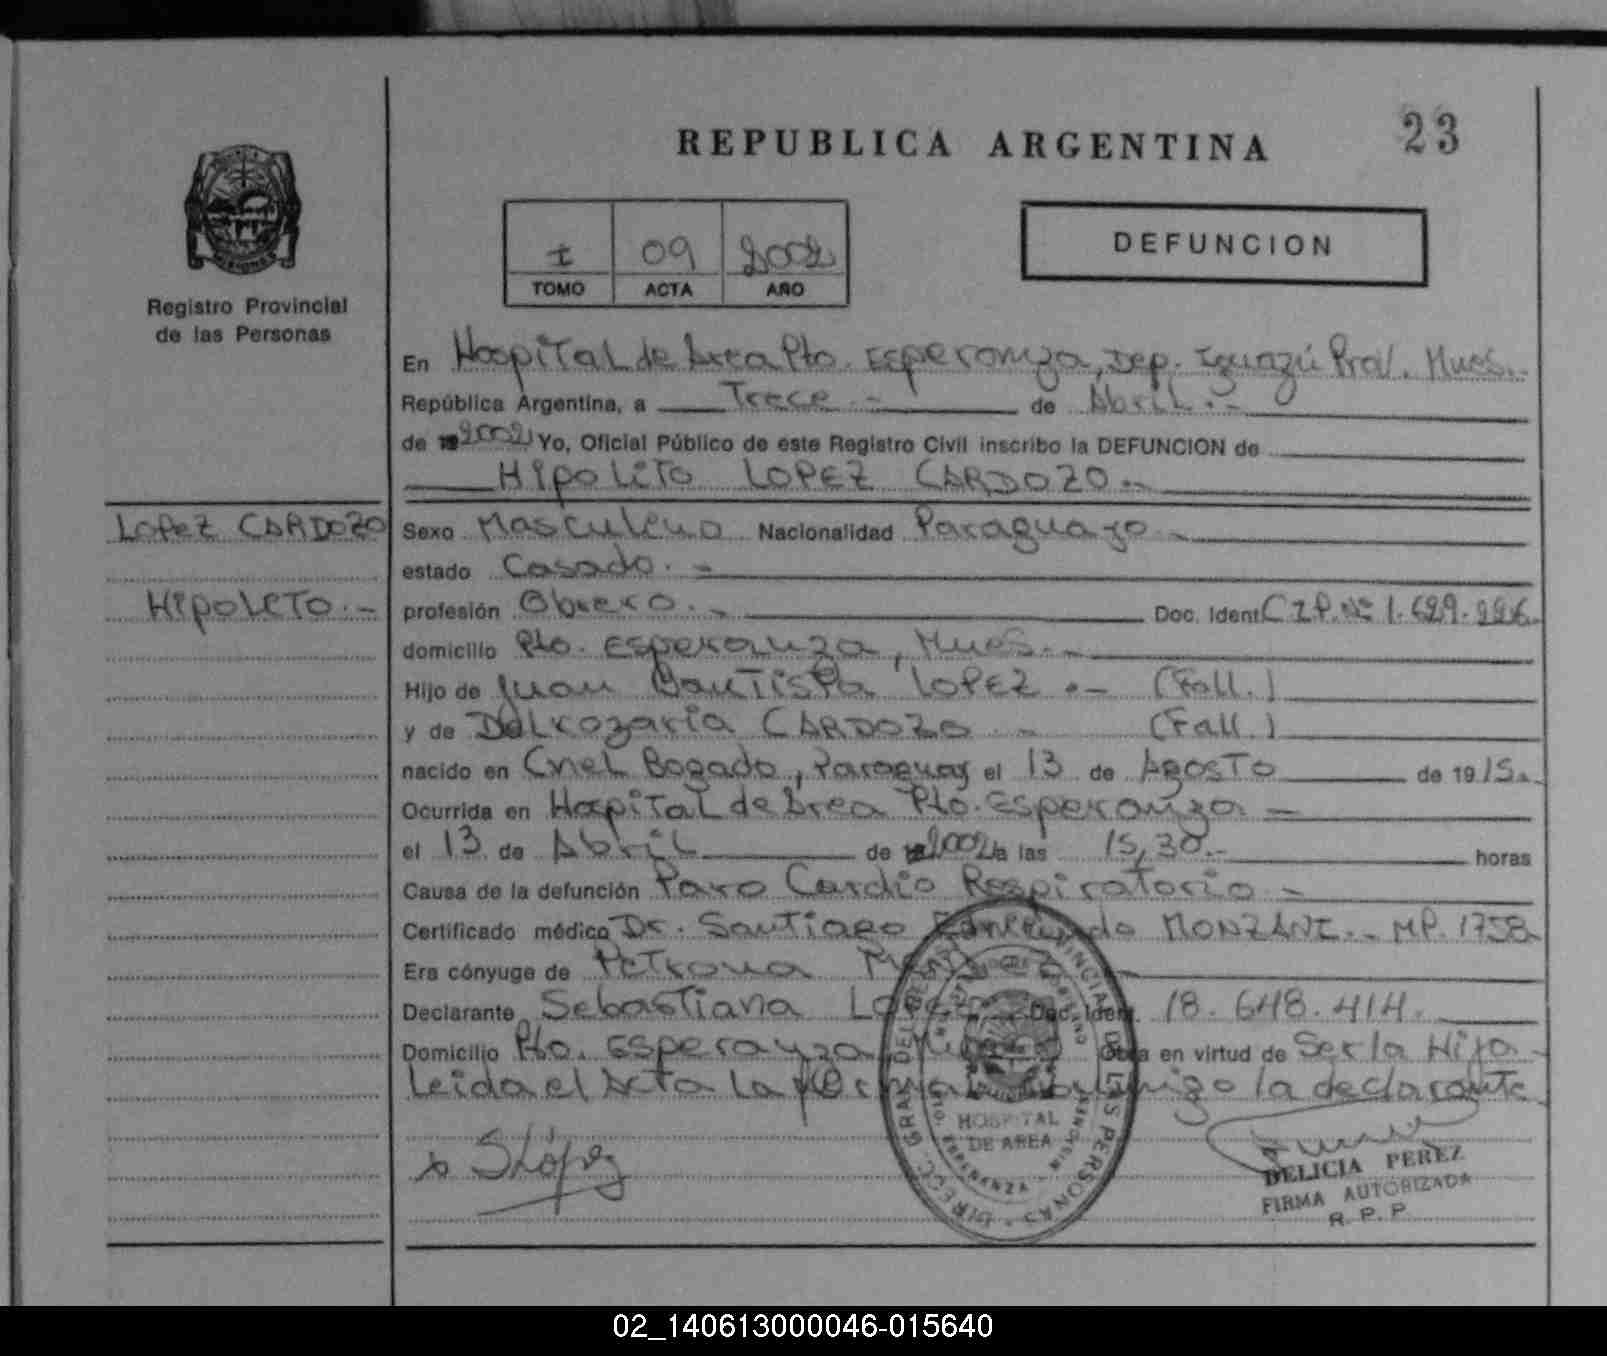 REPUBLICA ARGENTINA
23
MISIONES
Registro Provincial
de las Personas
I 09 2002
TOMO ACTA AÑO
DEFUNCION
En Hospital de Area Pto. Esperanza, Dep. Iguazú Prov. Mnes.-
República Argentina, a Trece.- de Abril.-
de 19 2002 Yo, Oficial Público de este Registro Civil inscribo la DEFUNCION de
Hipolito LOPEZ CARDOZO.-
LOPEZ CARDOZO
Hipolito.-
Sexo Masculino Nacionalidad Paraguayo.-
estado Casado.-
profesión Obrero.- Doc. Ident C.I.P. Nº 1.629.226.
domicilio Pto. Esperanza, Mnes.-
Hijo de Juan Bautista LOPEZ.- (Fall.)
y de Delrozaria CARDOZO.- (Fall.)
nacido en Cnel Bogado, Paraguay el 13 de Agosto de 1915.-
Ocurrida en Hospital de Area Pto. Esperanza.-
el 13 de Abril de 19 2002 a las 15,30.- horas
Causa de la defunción Paro Cardio Respiratorio.-
Certificado médico Dr. Santiago MONZANI.- MP. 1758
Era cónyuge de Petrona
Declarante Sebastiana Lopez Doc. Ident. 18.648.414.
Domicilio Pto. Esperanza Obra en virtud de Ser la Hija.-
Leida el Acta la firma conmigo la declarante
x SLópez
DIRECC. GRAL. DEL REG. PROVINCIAL DE LAS PERSONAS
HOSPITAL
DE AREA
PTO. ESPERANZA - MISIONES
DELICIA PEREZ
FIRMA AUTORIZADA
R. P. P.
02_140613000046-015640